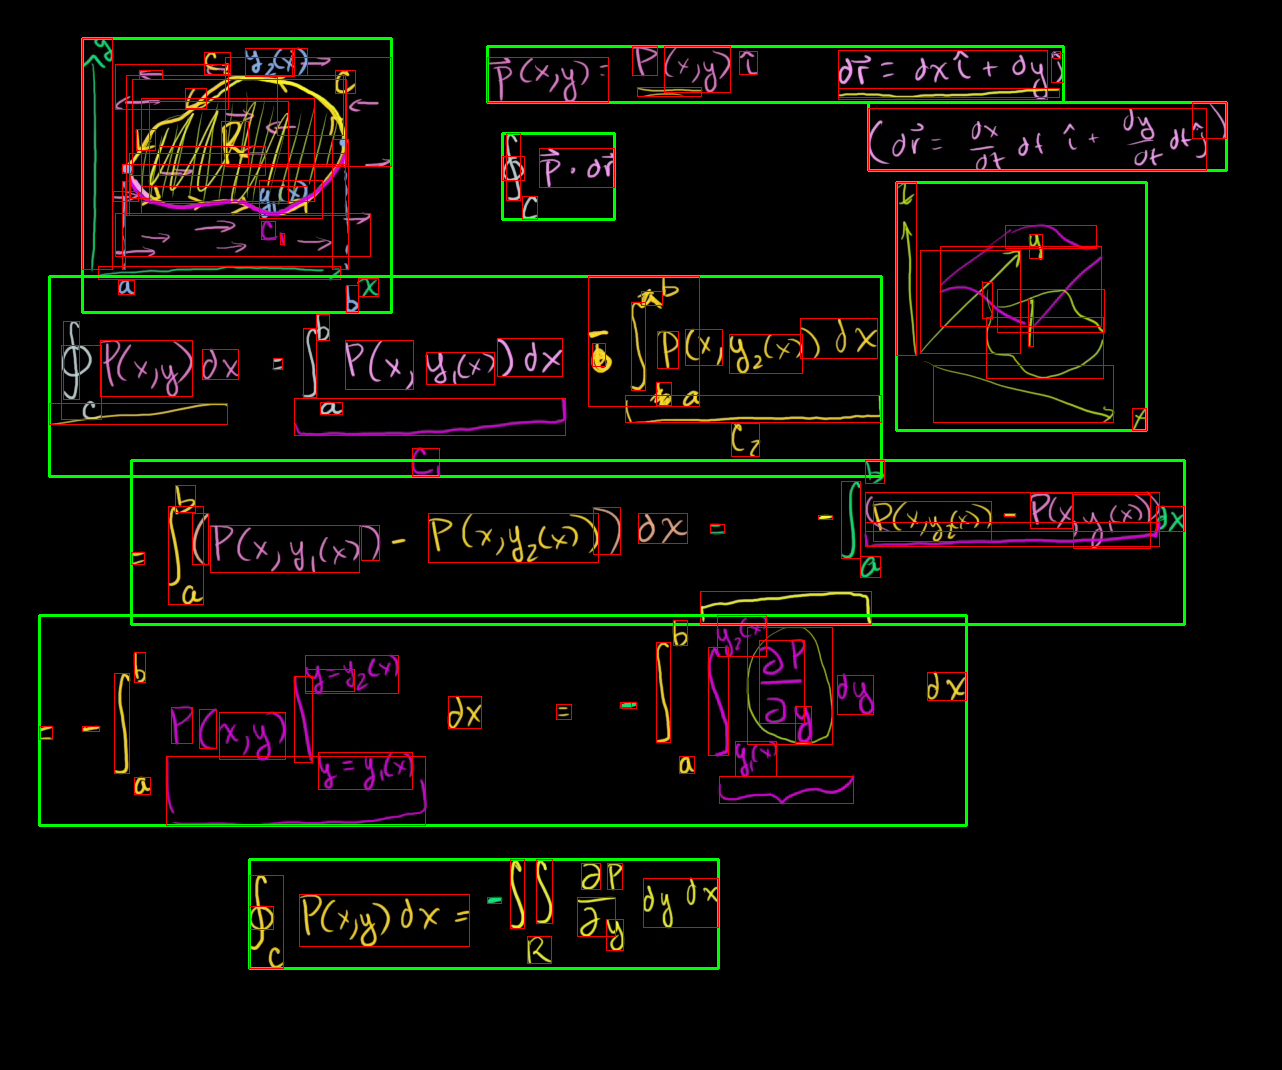 y C₂ y₂(x) C
R
y₁(x)
C₁
a b x
P⃗(x,y) = P(x,y) î dr⃗ = dx î + dy ĵ
(dr⃗ = dx/dt dt î + dy/dt dt ĵ)
∮_C P⃗ · dr⃗
y
x
∮_C P(x,y) dx = ∫_a^b P(x, y₁(x)) dx - ∫_a^b P(x, y₂(x)) dx
C₁ C₂
= ∫_a^b (P(x, y₁(x)) - P(x, y₂(x))) dx = - ∫_a^b (P(x, y₂(x)) - P(x, y₁(x))) dx
= - ∫_a^b P(x,y) |_{y = y₁(x)}^{y = y₂(x)} dx = - ∫_a^b ∫_{y₁(x)}^{y₂(x)} ∂P/∂y dy dx
∮_C P(x,y) dx = - ∬_R ∂P/∂y dy dx